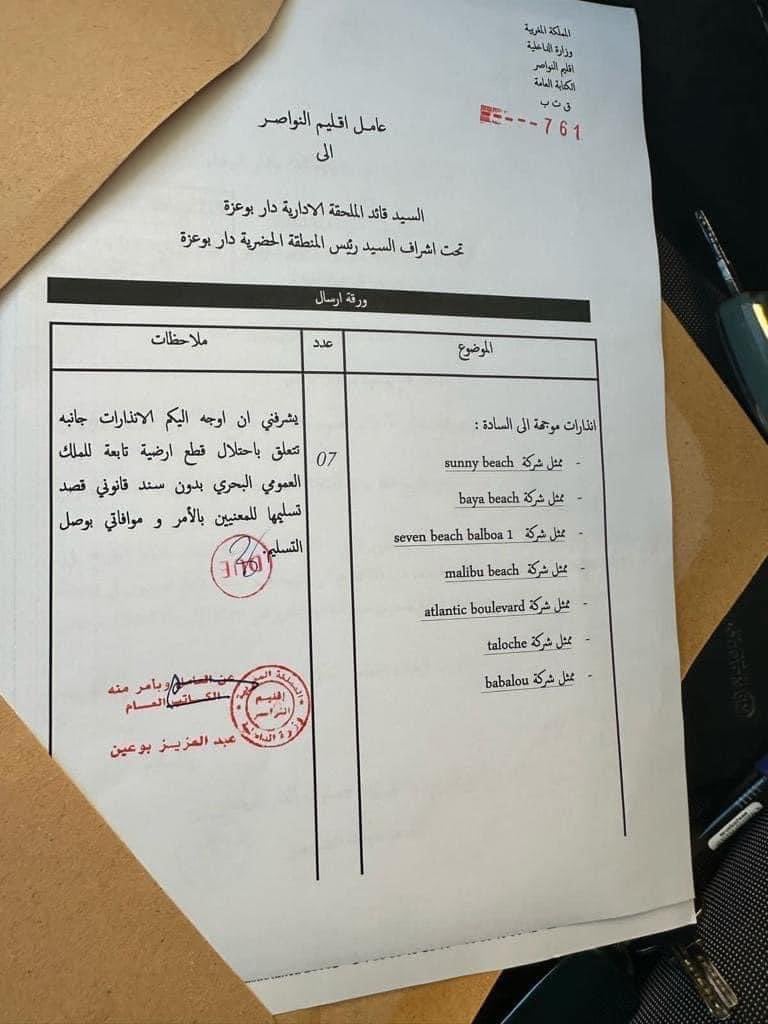 المملكة المغربية
وزارة الداخلية
اقليم النواصر
الكتابة العامة
ق ت ب
761
عامل اقليم النواصر
الى
السيد قائد الملحقة الادارية دار بوعزة
تحت اشراف السيد رئيس المنطقة الحضرية دار بوعزة
ورقة ارسال
الموضوع
عدد
ملاحظات
انذارات موجهة الى السادة :
- ممثل شركة sunny beach
- ممثل شركة baya beach
- ممثل شركة seven beach balboa 1
- ممثل شركة malibu beach
- ممثل شركة atlantic boulevard
- ممثل شركة taloche
- ممثل شركة babalou
07
يشرفني ان اوجه اليكم الانذارات جانبه
تتعلق باحتلال قطع ارضية تابعة للملك
العمومي البحري بدون سند قانوني قصد
تسليمها للمعنيين بالأمر و موافاتي بوصل
التسليم.
عن العامل وبأمر منه
الكاتب العام
عبد العزيز بوعين
المملكة المغربية
إقليم
النواصر
وزارة الداخلية